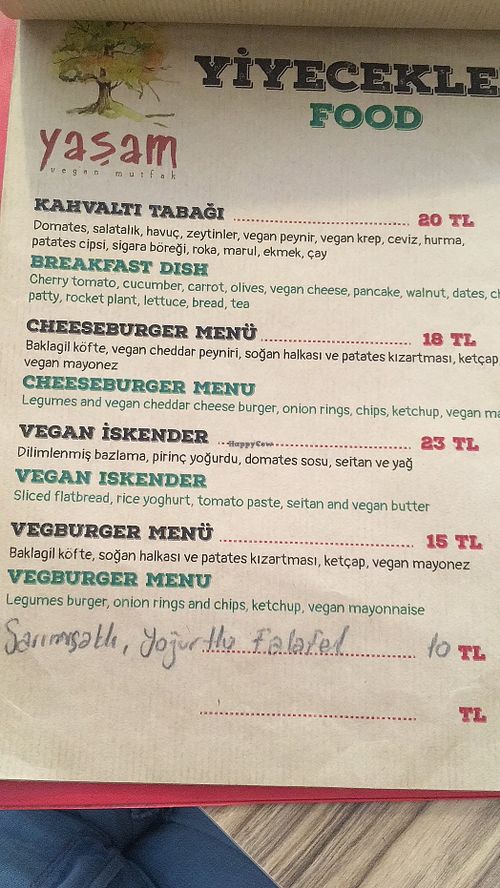 yaşam
vegan mutfak
YİYECEKLE
FOOD
KAHVALTI TABAĞI 20 TL
Domates, salatalık, havuç, zeytinler, vegan peynir, vegan krep, ceviz, hurma,
patates cipsi, sigara böreği, roka, marul, ekmek, çay
BREAKFAST DISH
Cherry tomato, cucumber, carrot, olives, vegan cheese, pancake, walnut, dates, ch
patty, rocket plant, lettuce, bread, tea
CHEESEBURGER MENÜ 18 TL
Baklagil köfte, vegan cheddar peyniri, soğan halkası ve patates kızartması, ketçap
vegan mayonez
CHEESEBURGER MENU
Legumes and vegan cheddar cheese burger, onion rings, chips, ketchup, vegan ma
VEGAN İSKENDER 23 TL
HappyCow
Dilimlenmiş bazlama, pirinç yoğurdu, domates sosu, seitan ve yağ
VEGAN ISKENDER
Sliced flatbread, rice yoghurt, tomato paste, seitan and vegan butter
VEGBURGER MENÜ 15 TL
Baklagil köfte, soğan halkası ve patates kızartması, ketçap, vegan mayonez
VEGBURGER MENU
Legumes burger, onion rings and chips, ketchup, vegan mayonnaise
Sarımsaklı, Yoğurtlu Falafel 10 TL
TL